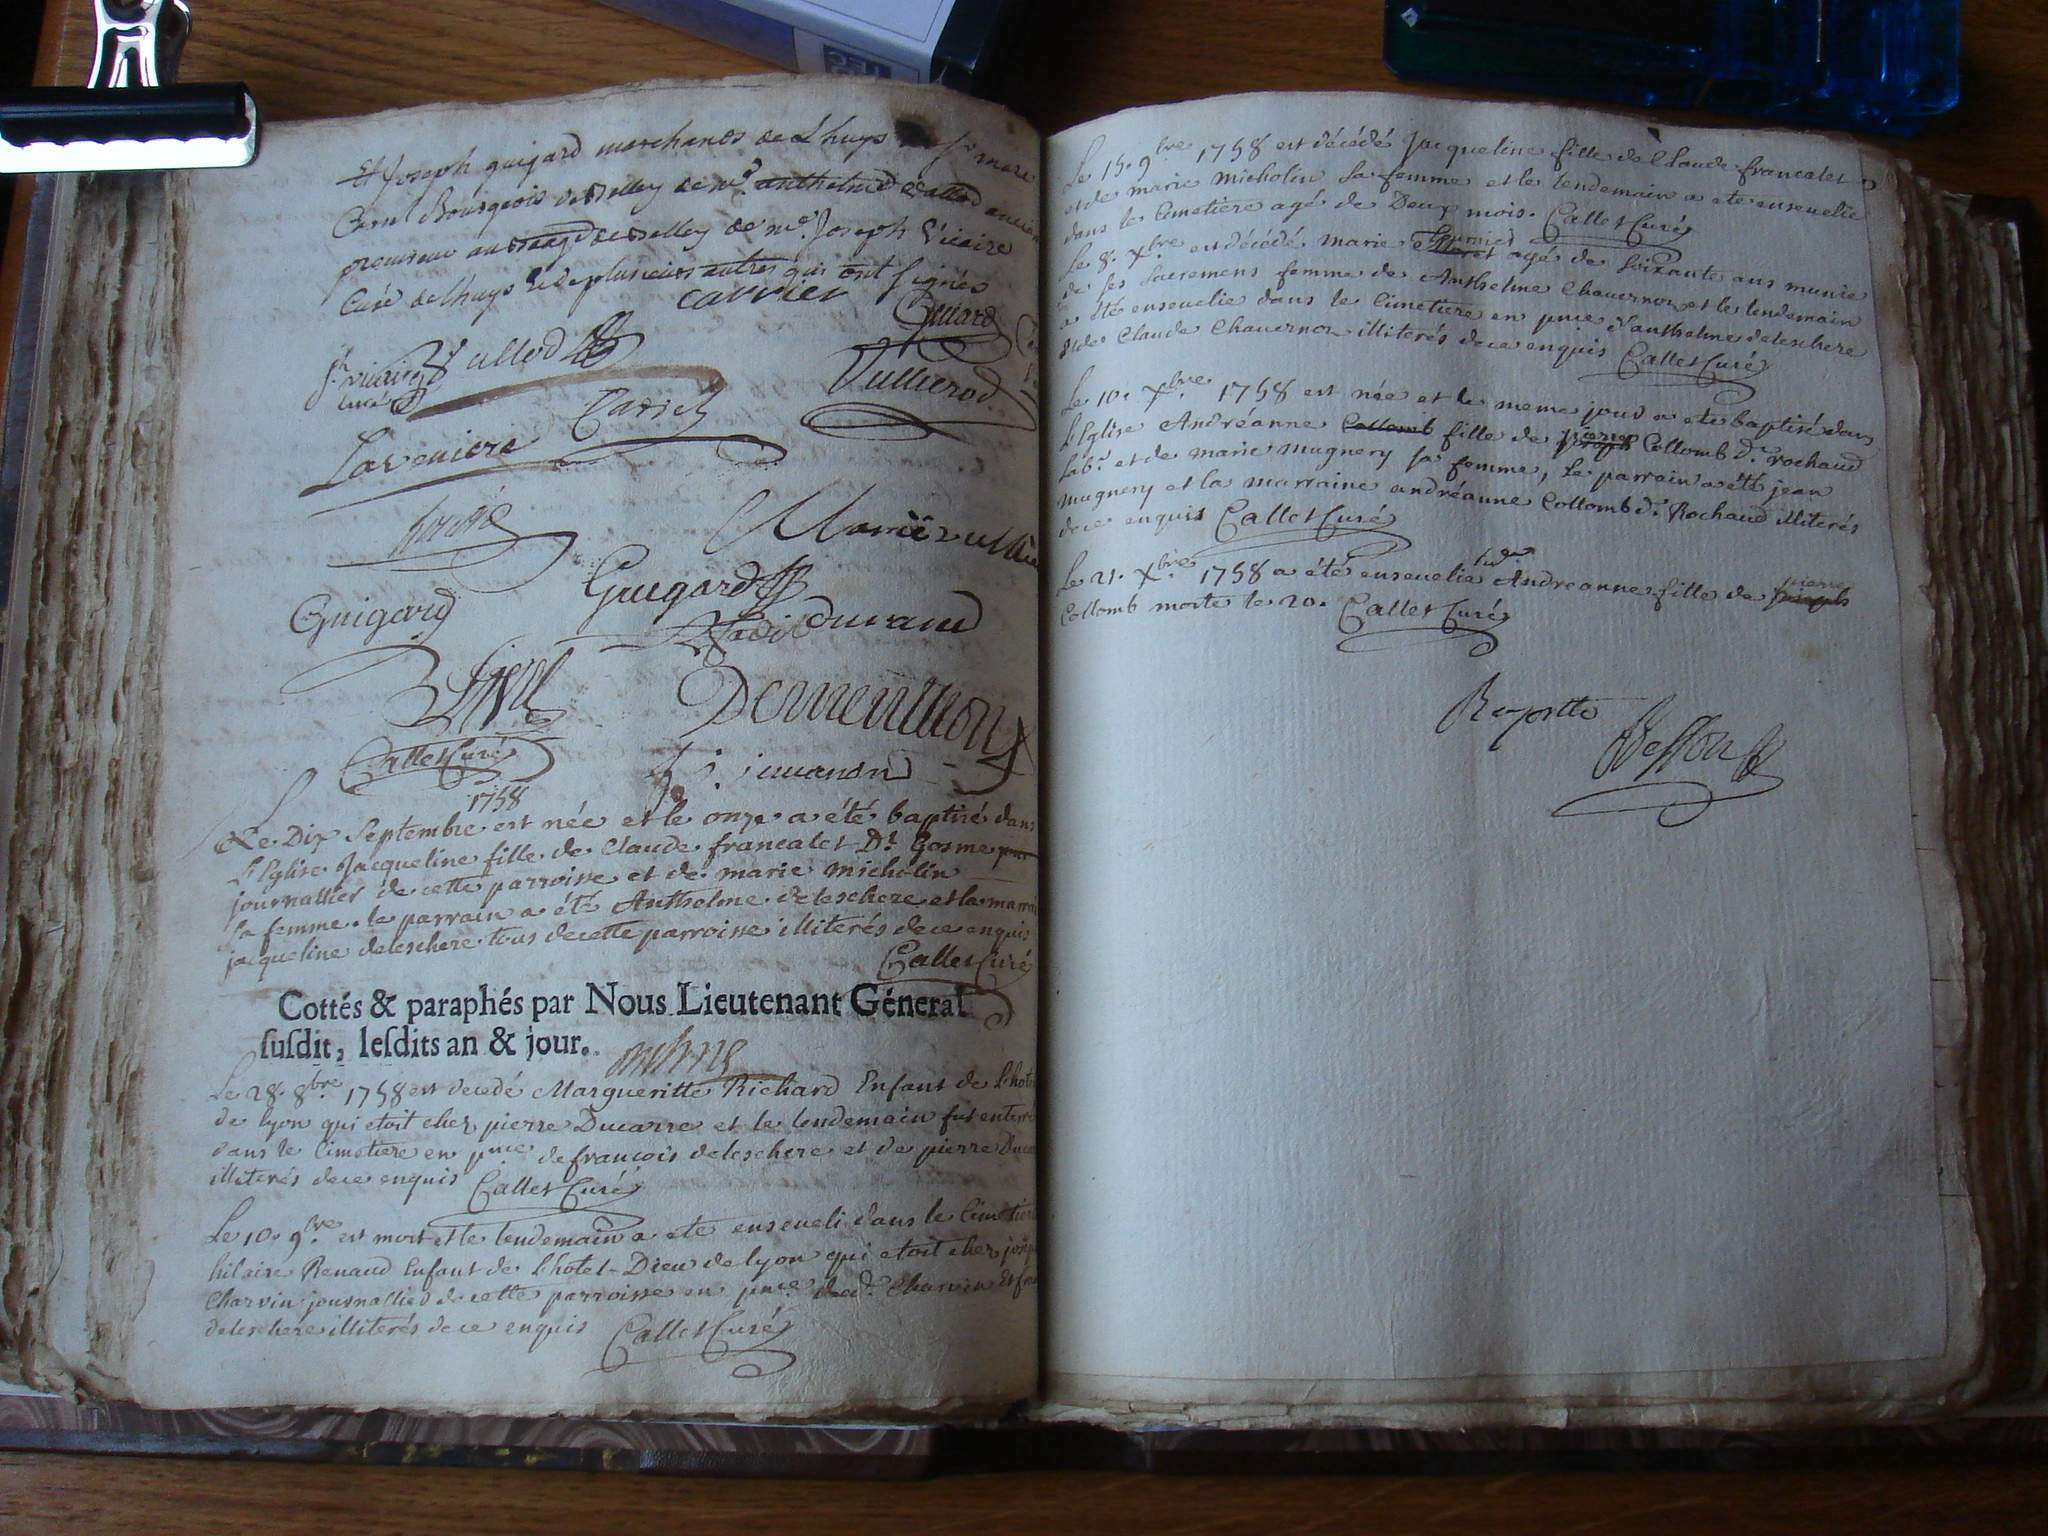 Et Joseph guigard marchands de Lhuys
bourgeois de Belley de mr. anthelme
procureur au de Belley de mr. Joseph Vicaire
Curé de lhuys & de plusieurs autres qui ont signés
carrier Guillard
Vullierod
Laveniere
Guigard
Guigard
Durand
Demeulllion
Callet Curé
1758
Le Dix Septembre est née et le onze a été baptisé dans
L'Eglise Jacqueline fille de Claude francalet Dt. Gosme
journallier de cette parroisse et de marie micholin
sa femme. le parrain a été Anthelme deleschere et la marrai
jacqueline deleschere tous de cette parroisse illiterés de ce enquis
Callet Curé
Cottés & paraphés par Nous Lieutenant Géneral
ſuſdit, leſdits an & jour.
Le 28. 8bre 1758 est decedé Margueritte Richard Enfant de Lhotel
de lyon qui etoit chez pierre Ducarre et le lendemain fut enterré
dans le Cimetiere en pnce de francois deleschere et de pierre Duca
illiterés de ce enquis Callet Curé
Le 10. 9bre est mort et le lendemain a ete enseveli dans le Cimetiere
hilaire Renaud Enfant de Lhotel-Dieu de lyon qui etoit chez joseph
Charvin journallier de cette parroisse en pnce dud. Charvin Et fra
deleschere illiterés de ce enquis Callet Curé
Le 15. 9bre 1758 est décédé Jacqueline fille de Claude francalet
et de marie micholin sa femme et le lendemain a ete ensevelie
dans le Cimetiere agé de Deux mois. Callet Curé
Le 8. Xbre est décédé marie agé de soixante ans munie
de ses sacremens femme de Anthelme Chavernon et le lendemain
a été ensevelie dans le Cimetiere en pnce d'anthelme deleschere
et de Claude Chavernon illiterés de ce enquis Callet Curé
Le 10. Xbre 1758 est née et le meme jour a ete baptisé dans
L'Eglise Andréanne Collomb fille de pierre Collomb dt. rochaud
labr. et de marie mugnery sa femme, Le parrain a été jean
mugnery et la marraine andréanne Collomb dt. Rochaud illiterés
de ce enquis Callet Curé
Le 21. Xbre 1758 a été ensevelie sude. Andreanne fille de pierre
Collomb morte le 20. Callet Curé
Besson